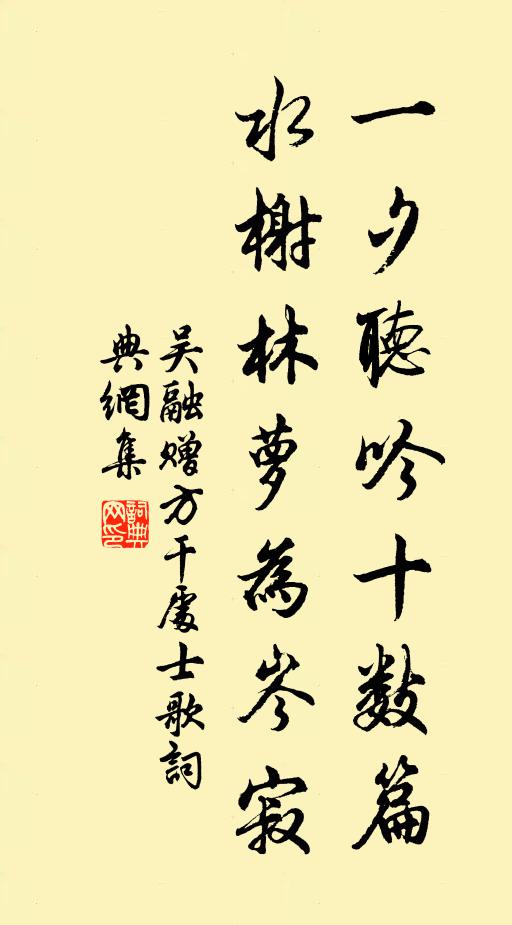 一夕聽吟十數篇
水榭林萝為岑寂
吴融赠方干處士歌詞
典網集
詞典
网印